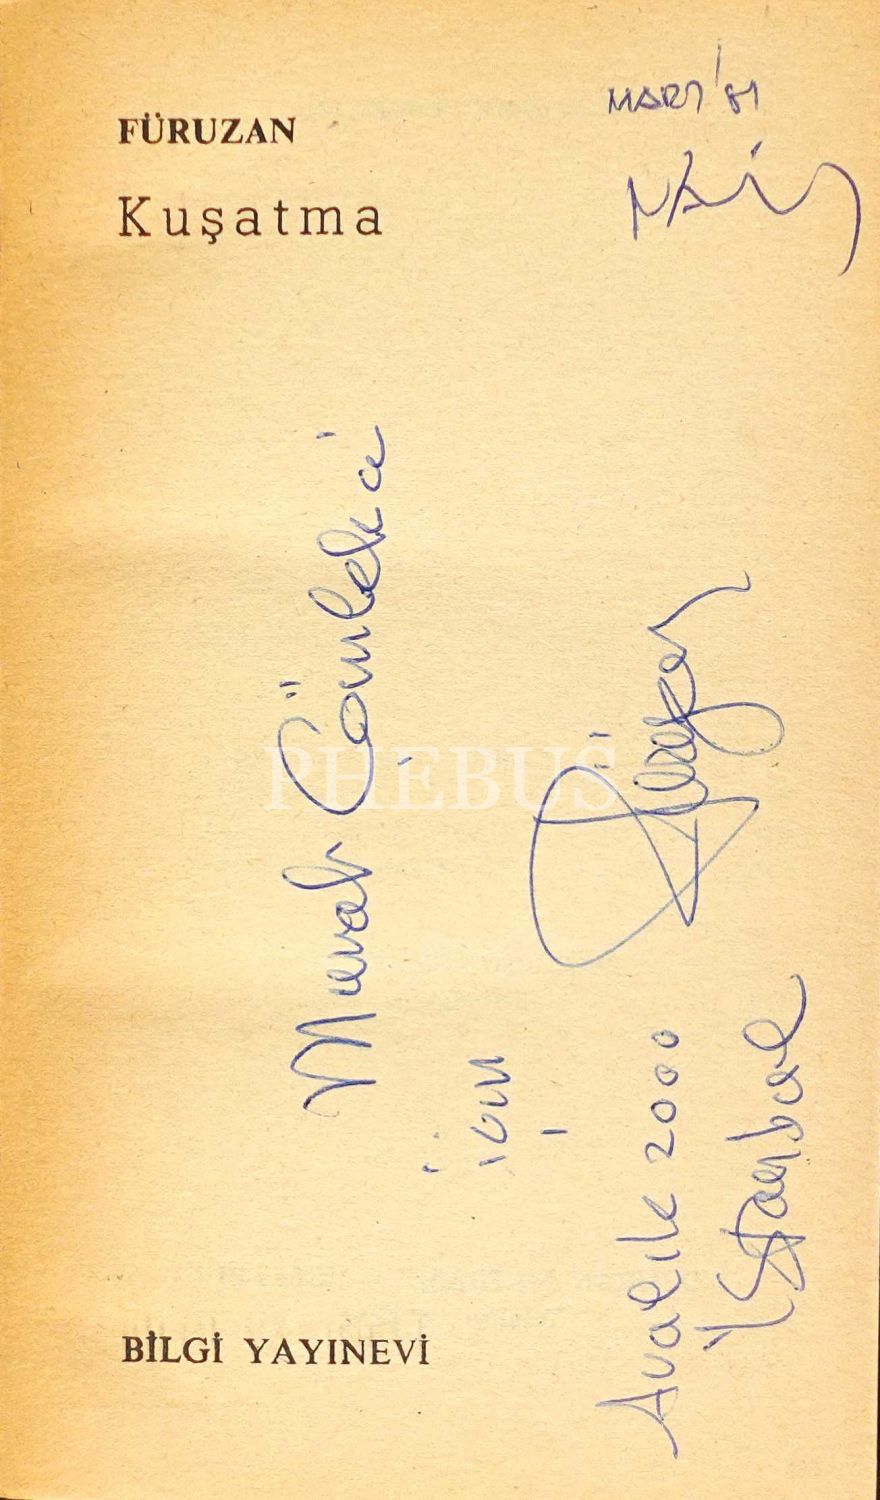 FÜRUZAN
Kuşatma
MART '81
Murat Çömlekci
için
Füruzan
Aralık 2000
İstanbul
PHEBUS
BİLGİ YAYINEVİ